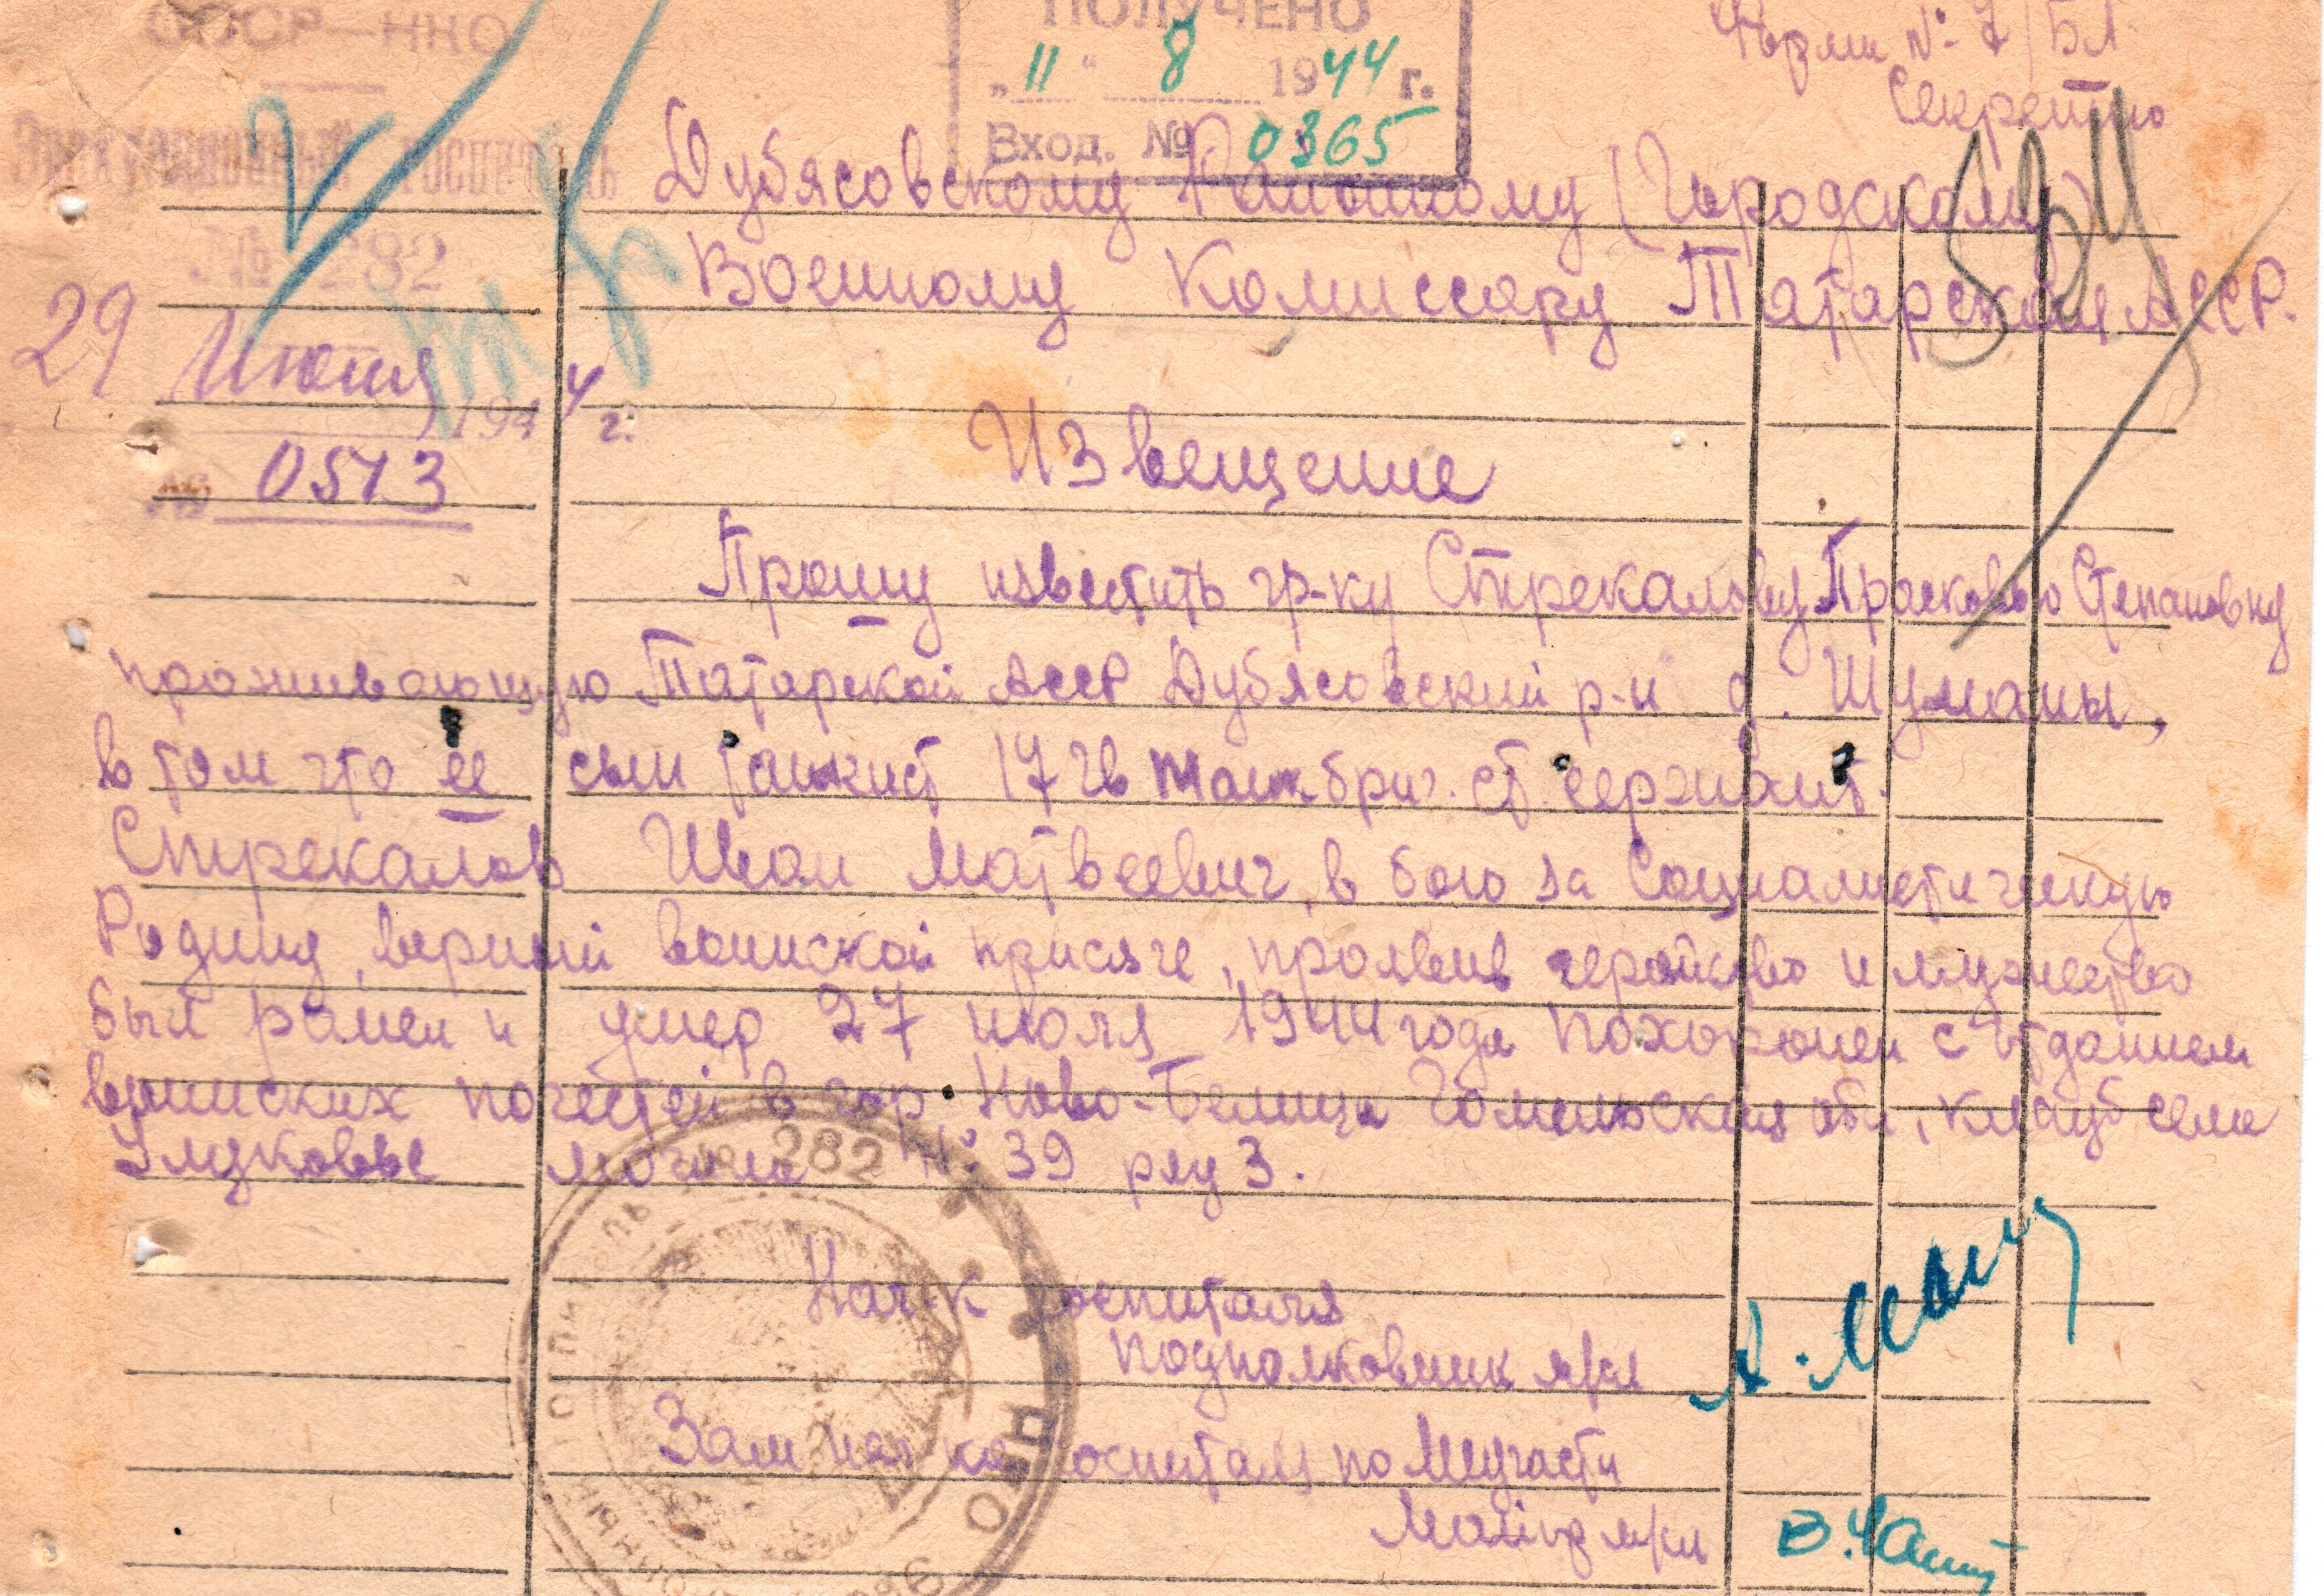 СССР—НКО
ПОЛУЧЕНО
„11" 8 1944 г.
Вход. № 0365
Форма № 7/БЛ
Секретно
Эвакуационный госпиталь
№ 282
29 Июня 1944 г.
№ 0513
Дубясовскому Районному (Городскому)
Военному Комиссару Татарской АССР.
Извещение
Прошу известить гр-ку Стрекалову Прасковью Степановну
проживающую Татарской АССР Дубясовский р-н д. Шуманы,
в том что ее сын танкист 17 гв танк. бриг. ст. сержант.
Стрекалов Иван Матвеевич, в бою за Социалистическую
Родину, верный воинской присяге, проявив геройство и мужество
был ранен и умер 27 июля 1944 года похоронен с отданием
воинских почестей в гор. Ново-Белица Гомельская обл, кладб села
могила № 39 ряд 3.
№ 282
Нач-к госпиталя
подполковник м/сл
Зам нач-ка госпиталя по Медчасти
Майор м/сл
НКО